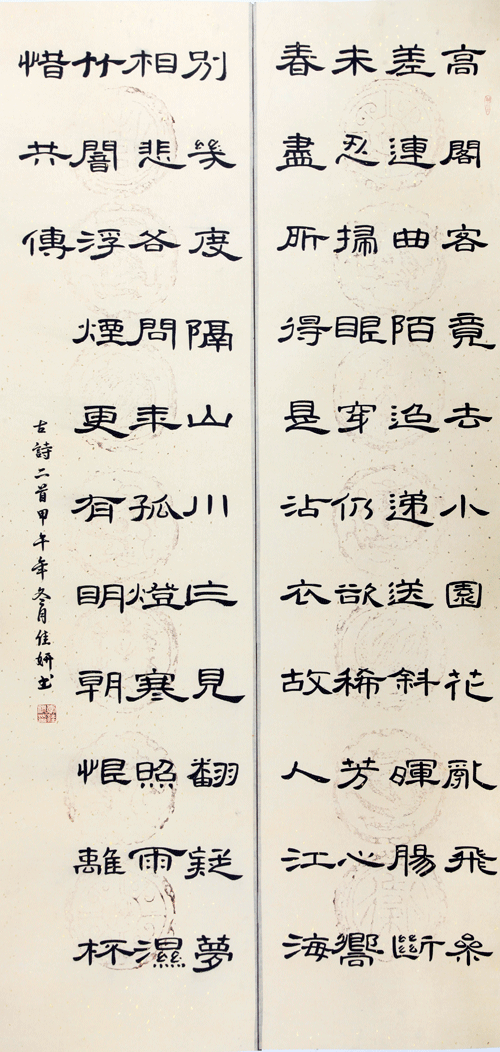 高閣客竟去小園花亂飛參
差連曲陌迢遞送斜暉腸斷
未忍掃眼穿仍欲稀芳心嚮
春盡所得是沾衣故人江海
別幾度隔山川乍見翻疑夢
相悲各問年孤燈寒照雨濕
竹闇浮煙更有明朝恨離杯
惜共傳
古詩二首甲午年冬月佳妍書